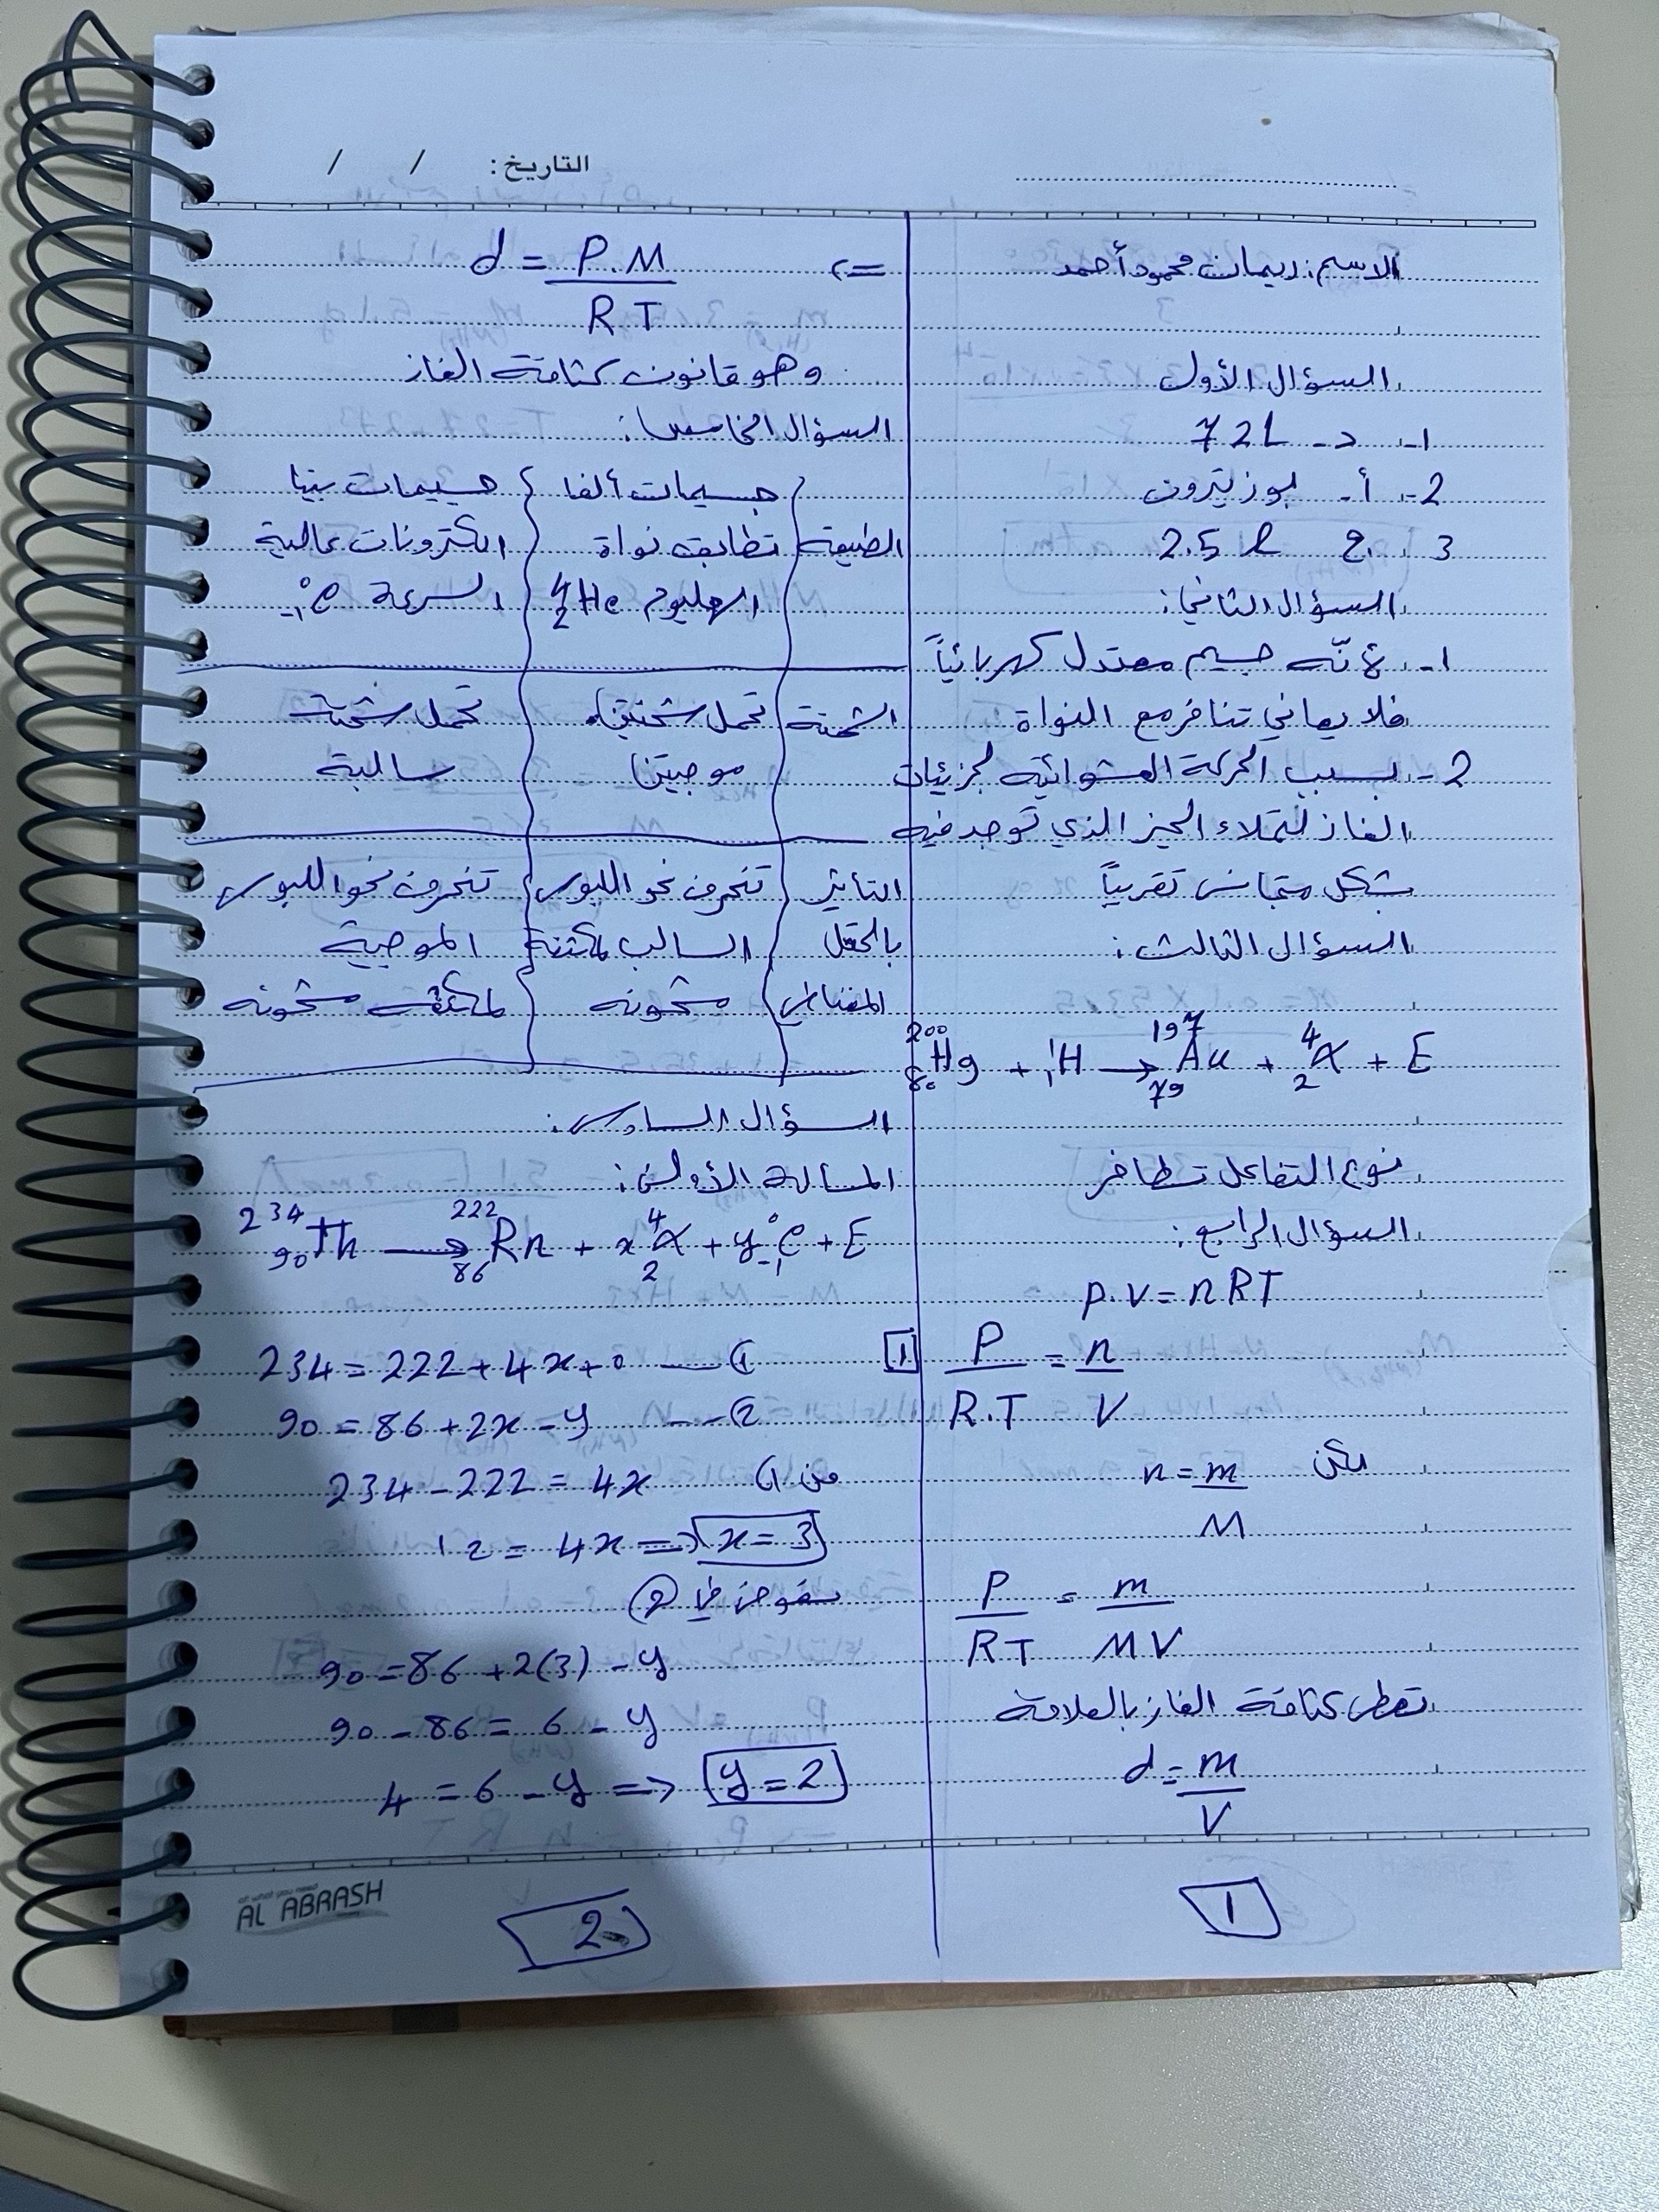 التاريخ: / /
الاسم: ريمان محمود أحمد
السؤال الأول
1- د- 72L
2- أ- بوزيترون
3 ج. 2.5 l
السؤال الثاني:
1- لأنّه جسيم معتدل كهربائياً
فلا يعاني تنافر مع النواة
2- بسبب الحركة العشوائية لجزيئات
الغاز لتملاء الحيز الذي توجد فيه
بشكل متجانس تقريباً
السؤال الثالث:
²⁰⁰₈₀Hg + ¹₁H → ¹⁹⁷₇₉Au + ⁴₂α + E
نوع التفاعل تطافر
السؤال الرابع:
P.V = nRT
P/R.T = n/V [1]
لكن n = m/M
P/RT = m/MV
تعطى كثافة الغاز بالعلاقة
d = m/V
1
=> d = P.M/RT
وهو قانون كثافة الغاز
السؤال الخامس:
جسيمات ألفا جسيمات بيتا
الطبيعة تطابق نواة الكترونات عالية
الهليوم ⁴₂He السرعة ⁰₋₁e
الشحنة تحمل شحنتين تحمل شحنة
موجبتين سالبة
التأثير تنحرف نحو اللبوس تنحرف نحو اللبوس
بالحقل السالب لمكثفة الموجبة
المغناطيسي مشحونة لمكثفة مشحونة
السؤال السادس:
المسألة الأولى:
²³⁴₉₀Th → ²²²₈₆Rn + x⁴₂α + y⁰₋₁e + E
234 = 222 + 4x + 0 — ①
90 = 86 + 2x - y -- ②
من ① 234 - 222 = 4x
12 = 4x => x = 3
نعوض في ②
90 = 86 + 2(3) - y
90 - 86 = 6 - y
4 = 6 - y => y = 2
2
all what you need
AL ABRASH